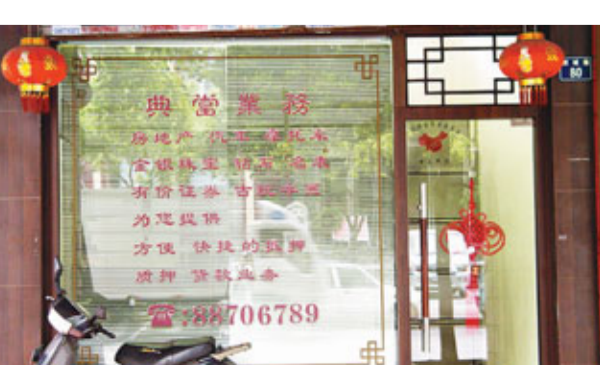 典當業務
房地产 汽车 摩托车
金银珠宝 钻石 名表
有价证券 古玩字画
为您提供
方便 快捷的抵押
质押 贷款业务
☎:88706789
80